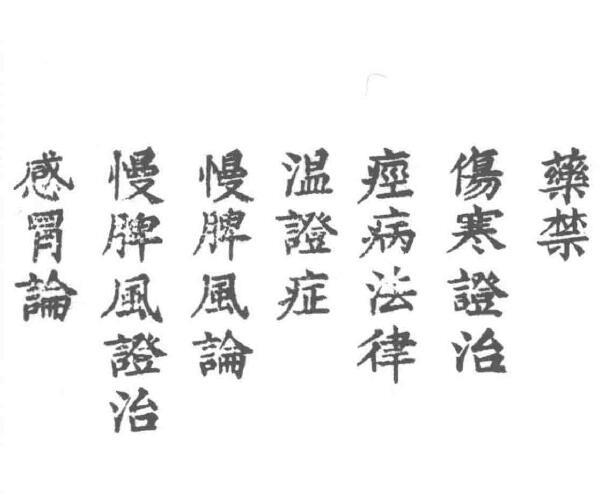 藥禁
傷寒證治
痙病法律
温證症
慢脾風論
慢脾風證治
感冒論